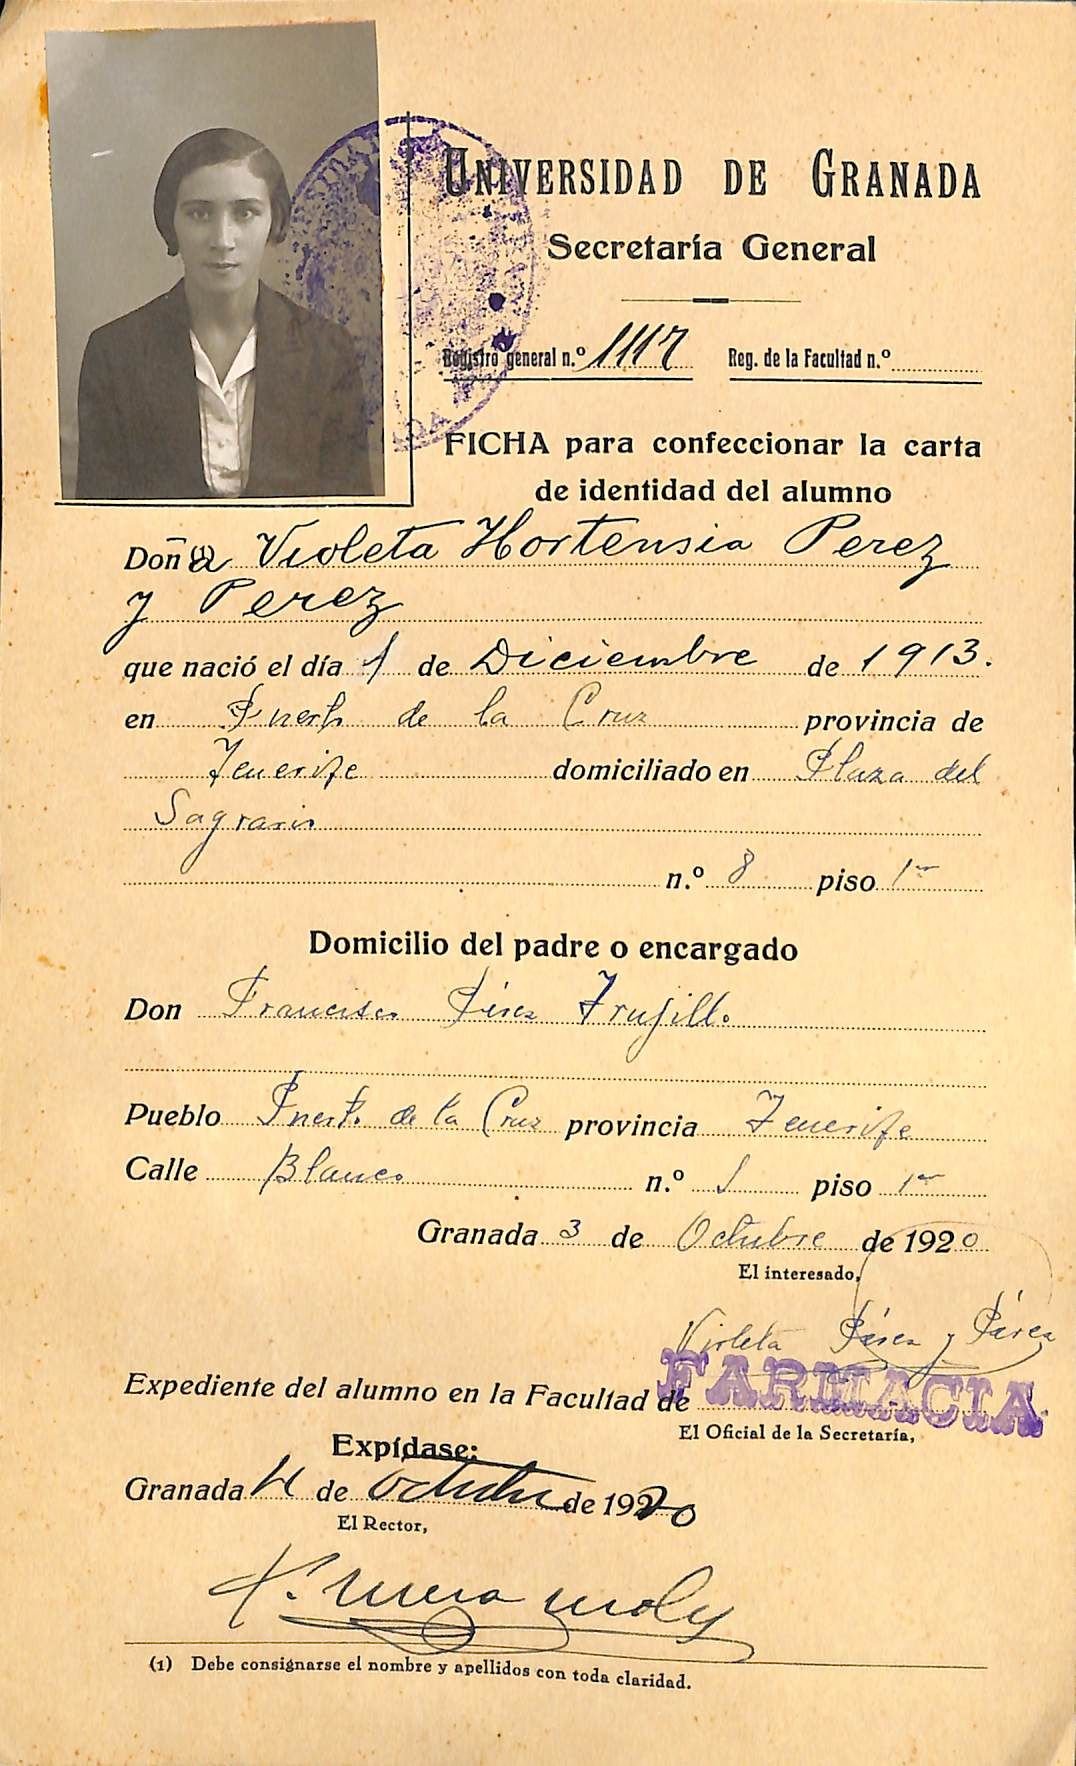 UNIVERSIDAD DE GRANADA
Secretaría General
Registro general n.º 1117 Reg. de la Facultad n.º
FICHA para confeccionar la carta
de identidad del alumno
Doña Violeta Hortensia Perez
y Perez
que nació el día 1 de Diciembre de 1913.
en Puerto de la Cruz provincia de
Tenerife domiciliado en Plaza del
Sagrario
n.º 8 piso 1º
Domicilio del padre o encargado
Don Francisco Pérez Trujillo
Pueblo Puerto de la Cruz provincia Tenerife
Calle Blanco n.º 1 piso 1º
Granada 3 de Octubre de 1920
El interesado,
Violeta Pérez y Pérez
Expediente del alumno en la Facultad de FARMACIA
El Oficial de la Secretaría,
Expídase:
Granada de octubre de 19
El Rector,
(1) Debe consignarse el nombre y apellidos con toda claridad.